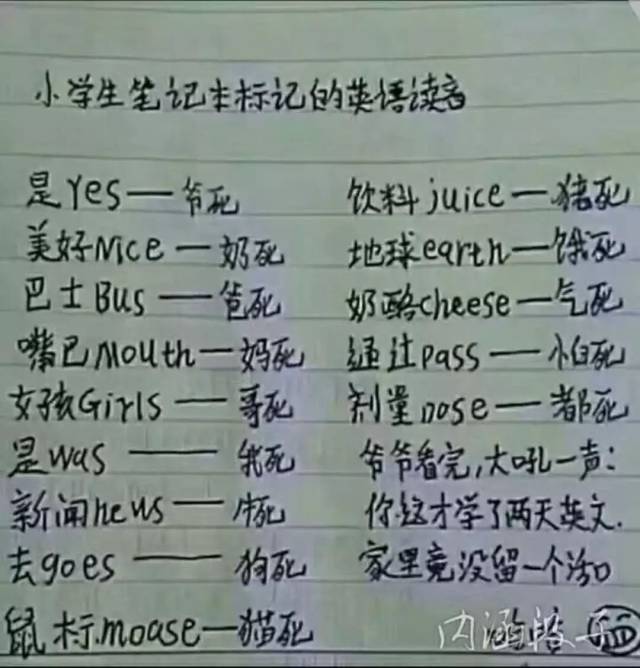 小学生笔记本标记的英语读音
是Yes——爷死
美好Nice——奶死
巴士Bus——爸死
嘴巴Mouth——妈死
女孩Girls——哥死
是was——我死
新闻news——牛死
去goes——狗死
鼠标mouse——猫死
饮料juice——猪死
地球earth——饿死
奶酪cheese——气死
通过pass——怕死
剂量dose——都死
爷爷看完,大吼一声:
你这才学了两天英文.
家里竟没留一个活口
内涵段子